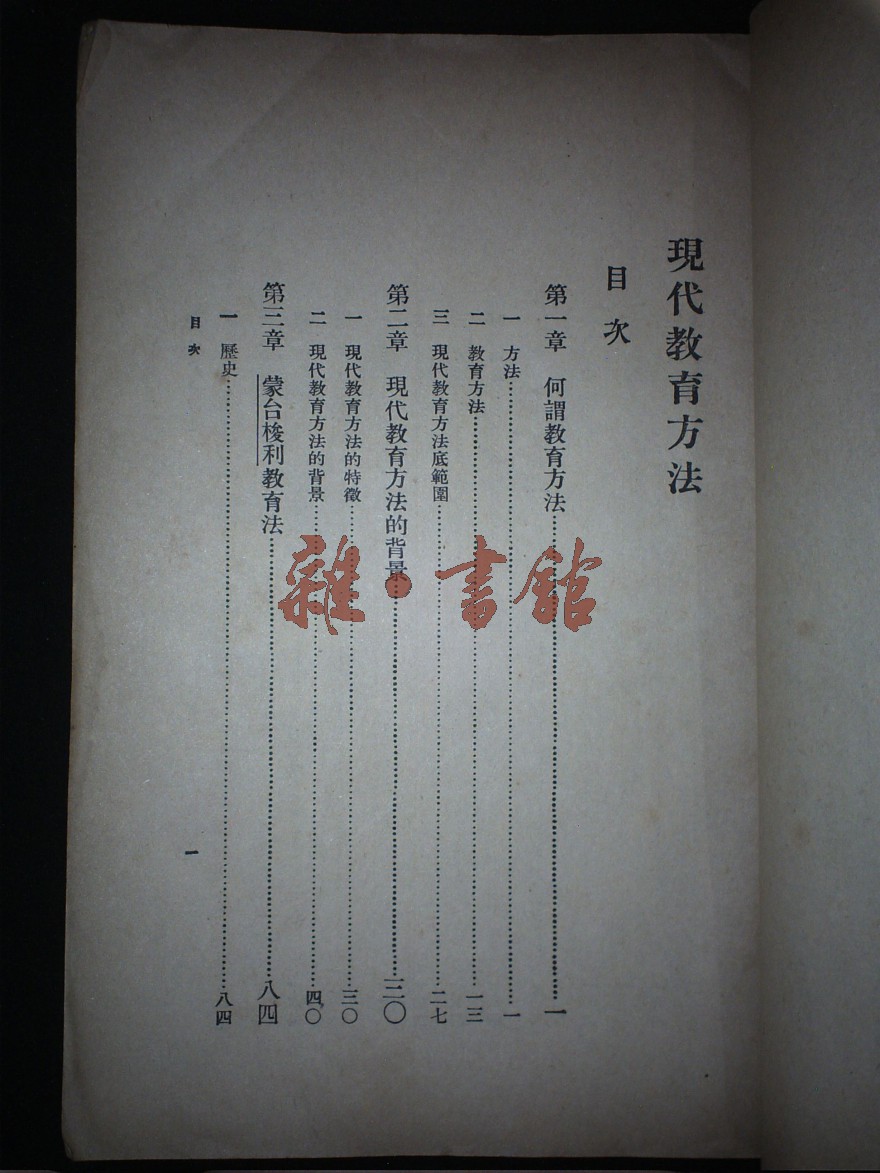 現代教育方法
目次
第一章 何謂教育方法…………一
一 方法…………一
二 教育方法…………一三
三 現代教育方法底範圍…………二七
第二章 現代教育方法的背景…………三〇
一 現代教育方法的特徵…………三〇
二 現代教育方法的背景…………四〇
第三章 蒙台梭利教育法…………八四
一 歷史…………八四
目次 一
雜·書館